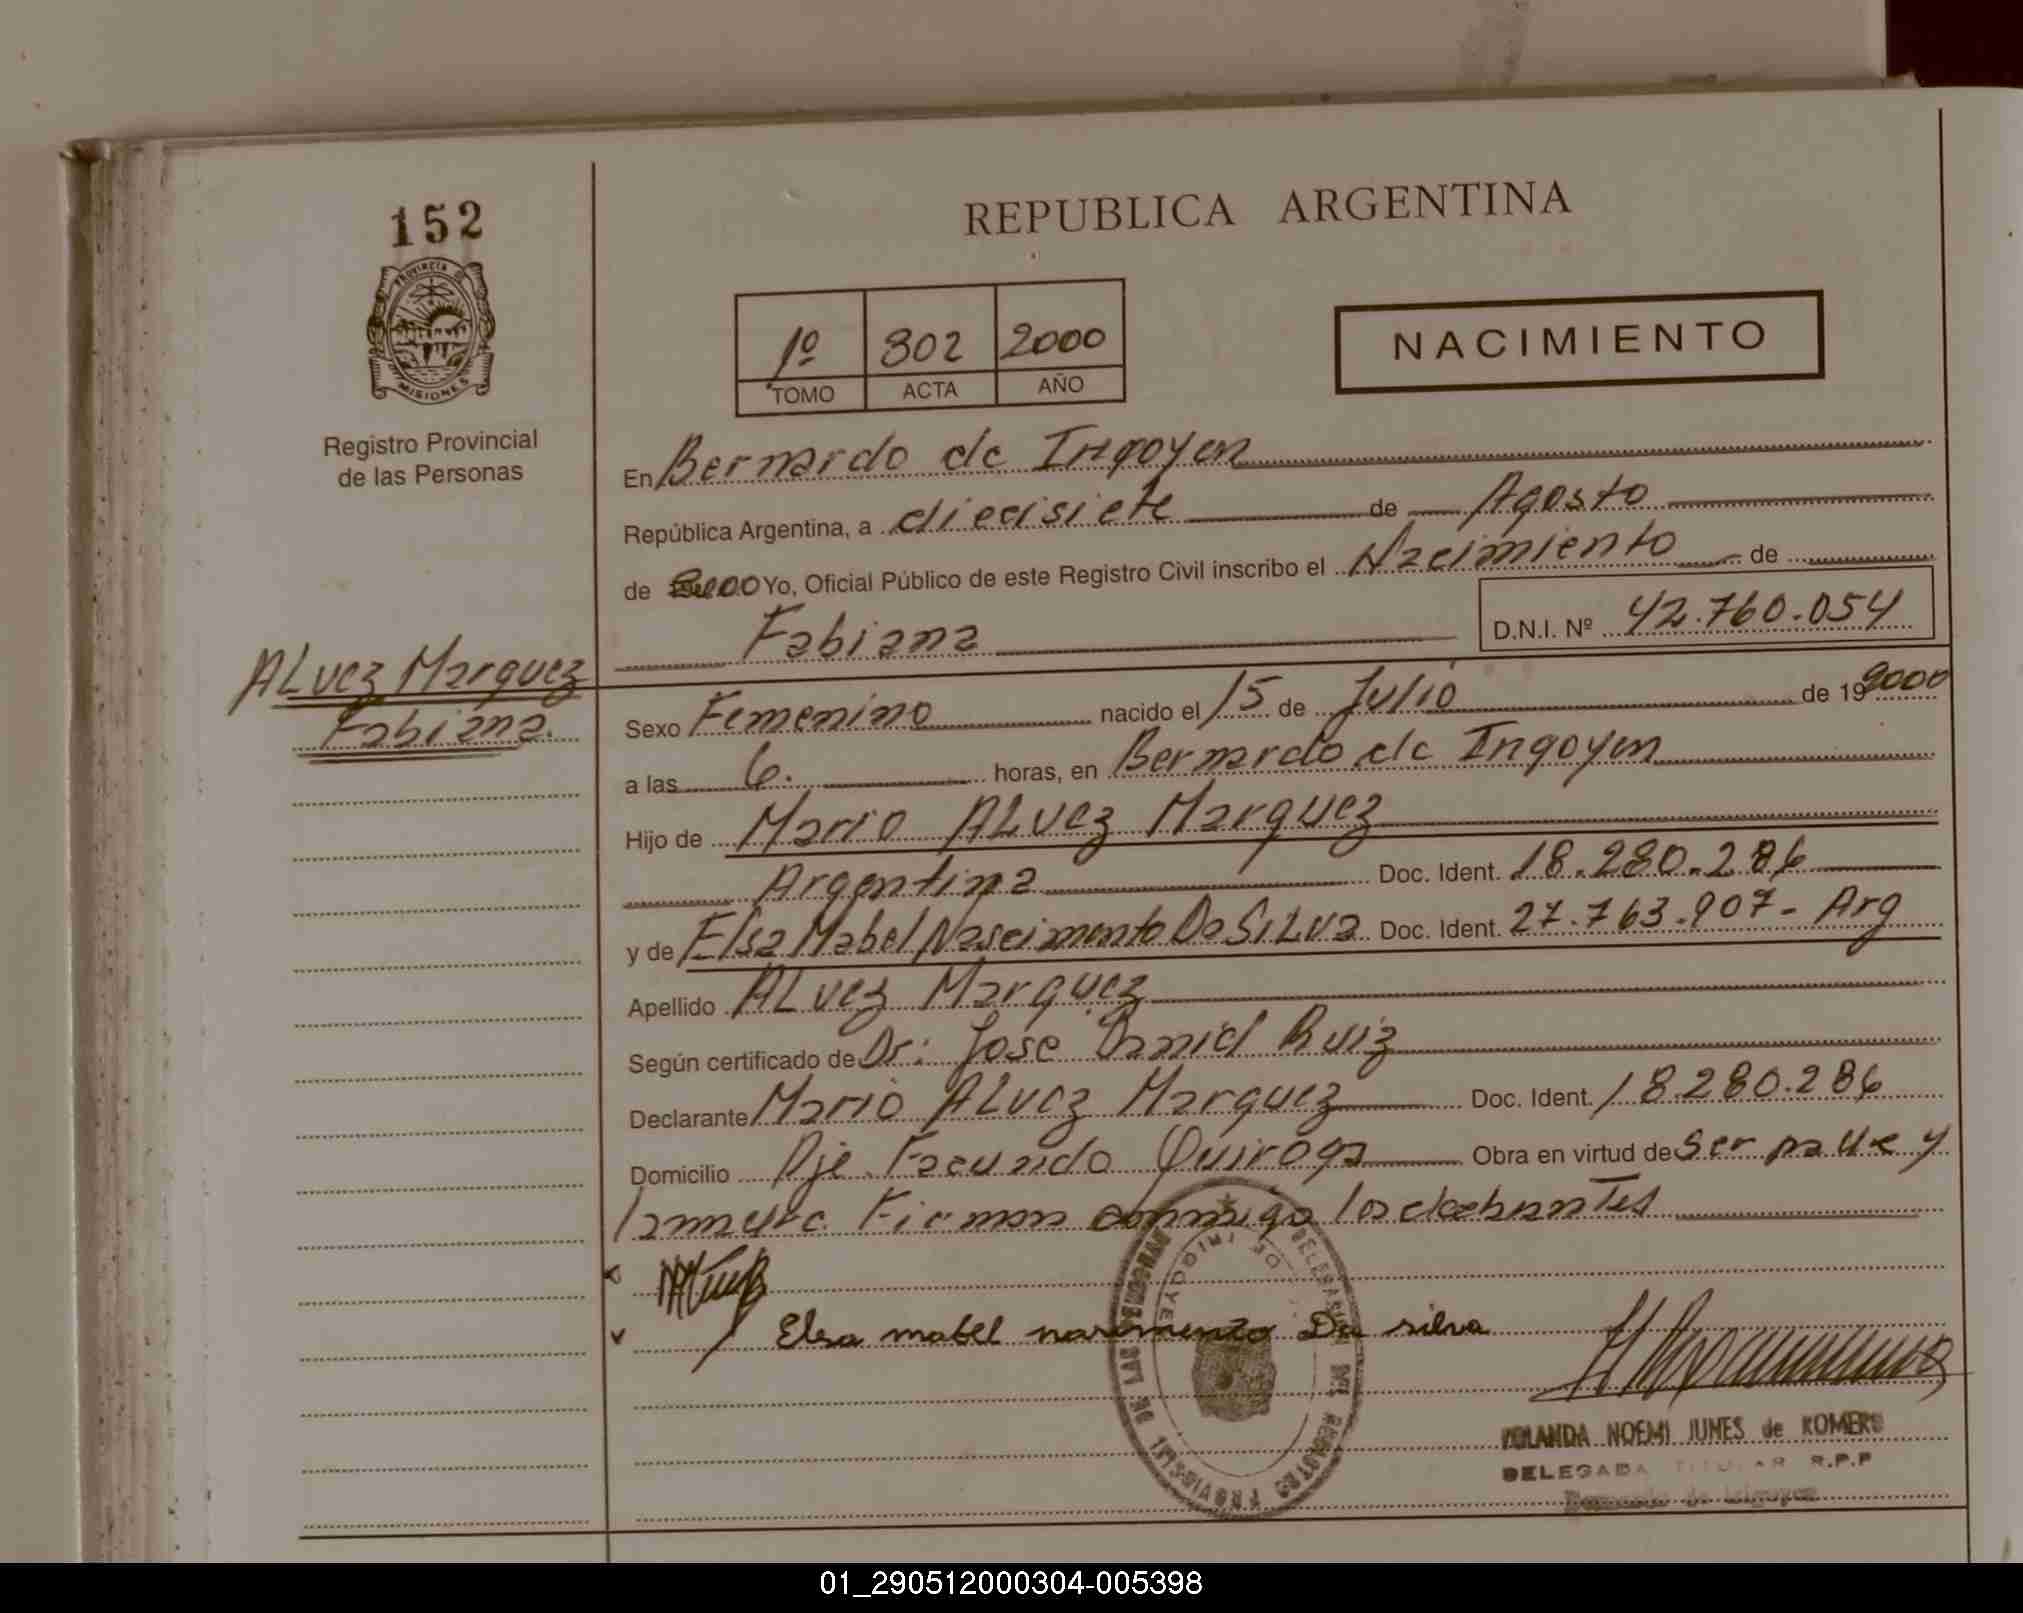 152
REPUBLICA ARGENTINA
PROVINCIA DE MISIONES
Registro Provincial
de las Personas
1º 302 2000
TOMO ACTA AÑO
NACIMIENTO
En Bernardo de Irigoyen
República Argentina, a diecisiete de Agosto
de 2000 Yo, Oficial Público de este Registro Civil inscribo el Nacimiento de
Fabiana D.N.I. Nº 42.760.054
ALvez Marquez
Fabiana.
Sexo Femenino nacido el 15 de Julio de 19 2000
a las 6. horas, en Bernardo de Irigoyen
Hijo de Mario ALvez Marquez
Argentina Doc. Ident. 18.280.286
y de Elsa Mabel Nascimento Da SiLva Doc. Ident. 27.763.907- Arg
Apellido ALvez Marquez
Según certificado de Dr: Jose Daniel Ruiz
Declarante Mario ALvez Marquez Doc. Ident. 18.280.286
Domicilio Pje. Facundo Quiroga Obra en virtud de ser padre y
la madre. Firman conmigo los
Elsa mabel nasimento Da silva
YOLANDA NOEMI JUNES de ROMERO
DELEGADA TITULAR R.P.P
Bernardo de Irigoyen
01_290512000304-005398